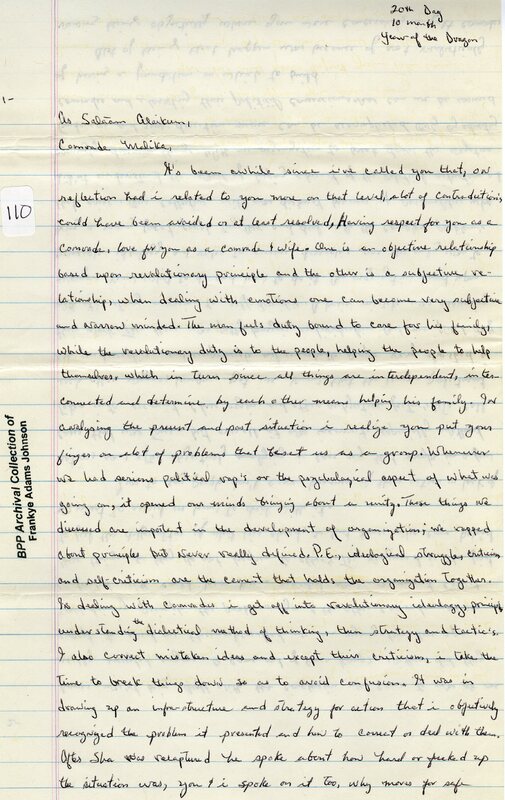 20th Day
10 month
Year of the Dragon
1-
As Salaam Alaikum,
Comrade Malika,
It's been awhile since i've called you that, on
reflection had i related to you more on that level, alot of contradictions
could have been avoided or at least resolved, Having respect for you as a
comrade, love for you as a comrade & wife. One is an objective relationship
based upon revolutionary principle and the other is a subjective re-
lationship, when dealing with emotions one can become very subjective
and narrow minded. The man feels duty bound to care for his family,
while the revolutionary duty is to the people, helping the people to help
themselves, which in turn since all things are interdependent, inter-
connected and determine by each other means helping his family. In
analyzing the present and past situation i realize you put your
finger on alot of problems that beset us as a group. Whenever
we had serious political rap's or the psychological aspect of what was
going on, it opened our minds bringing about a unity. Those things we
discussed are important in the development of organization; we rapped
about principles but never really defined. P.E., ideological struggle, criticism
and self-criticism are the cement that holds the organization together.
In dealing with comrades i get off into revolutionary ideology, principle
understanding the dialectical method of thinking, then strategy and tactic's.
I also correct mistaken ideas and except their criticism, i take the
time to break things down so as to avoid confusion. It was in
drawing up an infra-structure and strategy for action that i objectively
recognized the problem it presented and how to correct or deal with them.
After Sha was recaptured he spoke about how hard or fucked up
the situation was, you & i spoke on it too, why moves for safe
110
BPP Archival Collection of
Frankye Adams Johnson